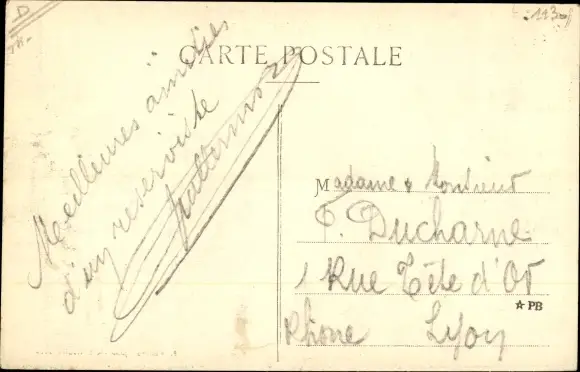 D
CARTE POSTALE
Meilleures amitiés
d'un réserviste
Madame & Monsieur
F. Ducharne
1 Rue Tête d'Or
☆ PB
Rhône Lyon